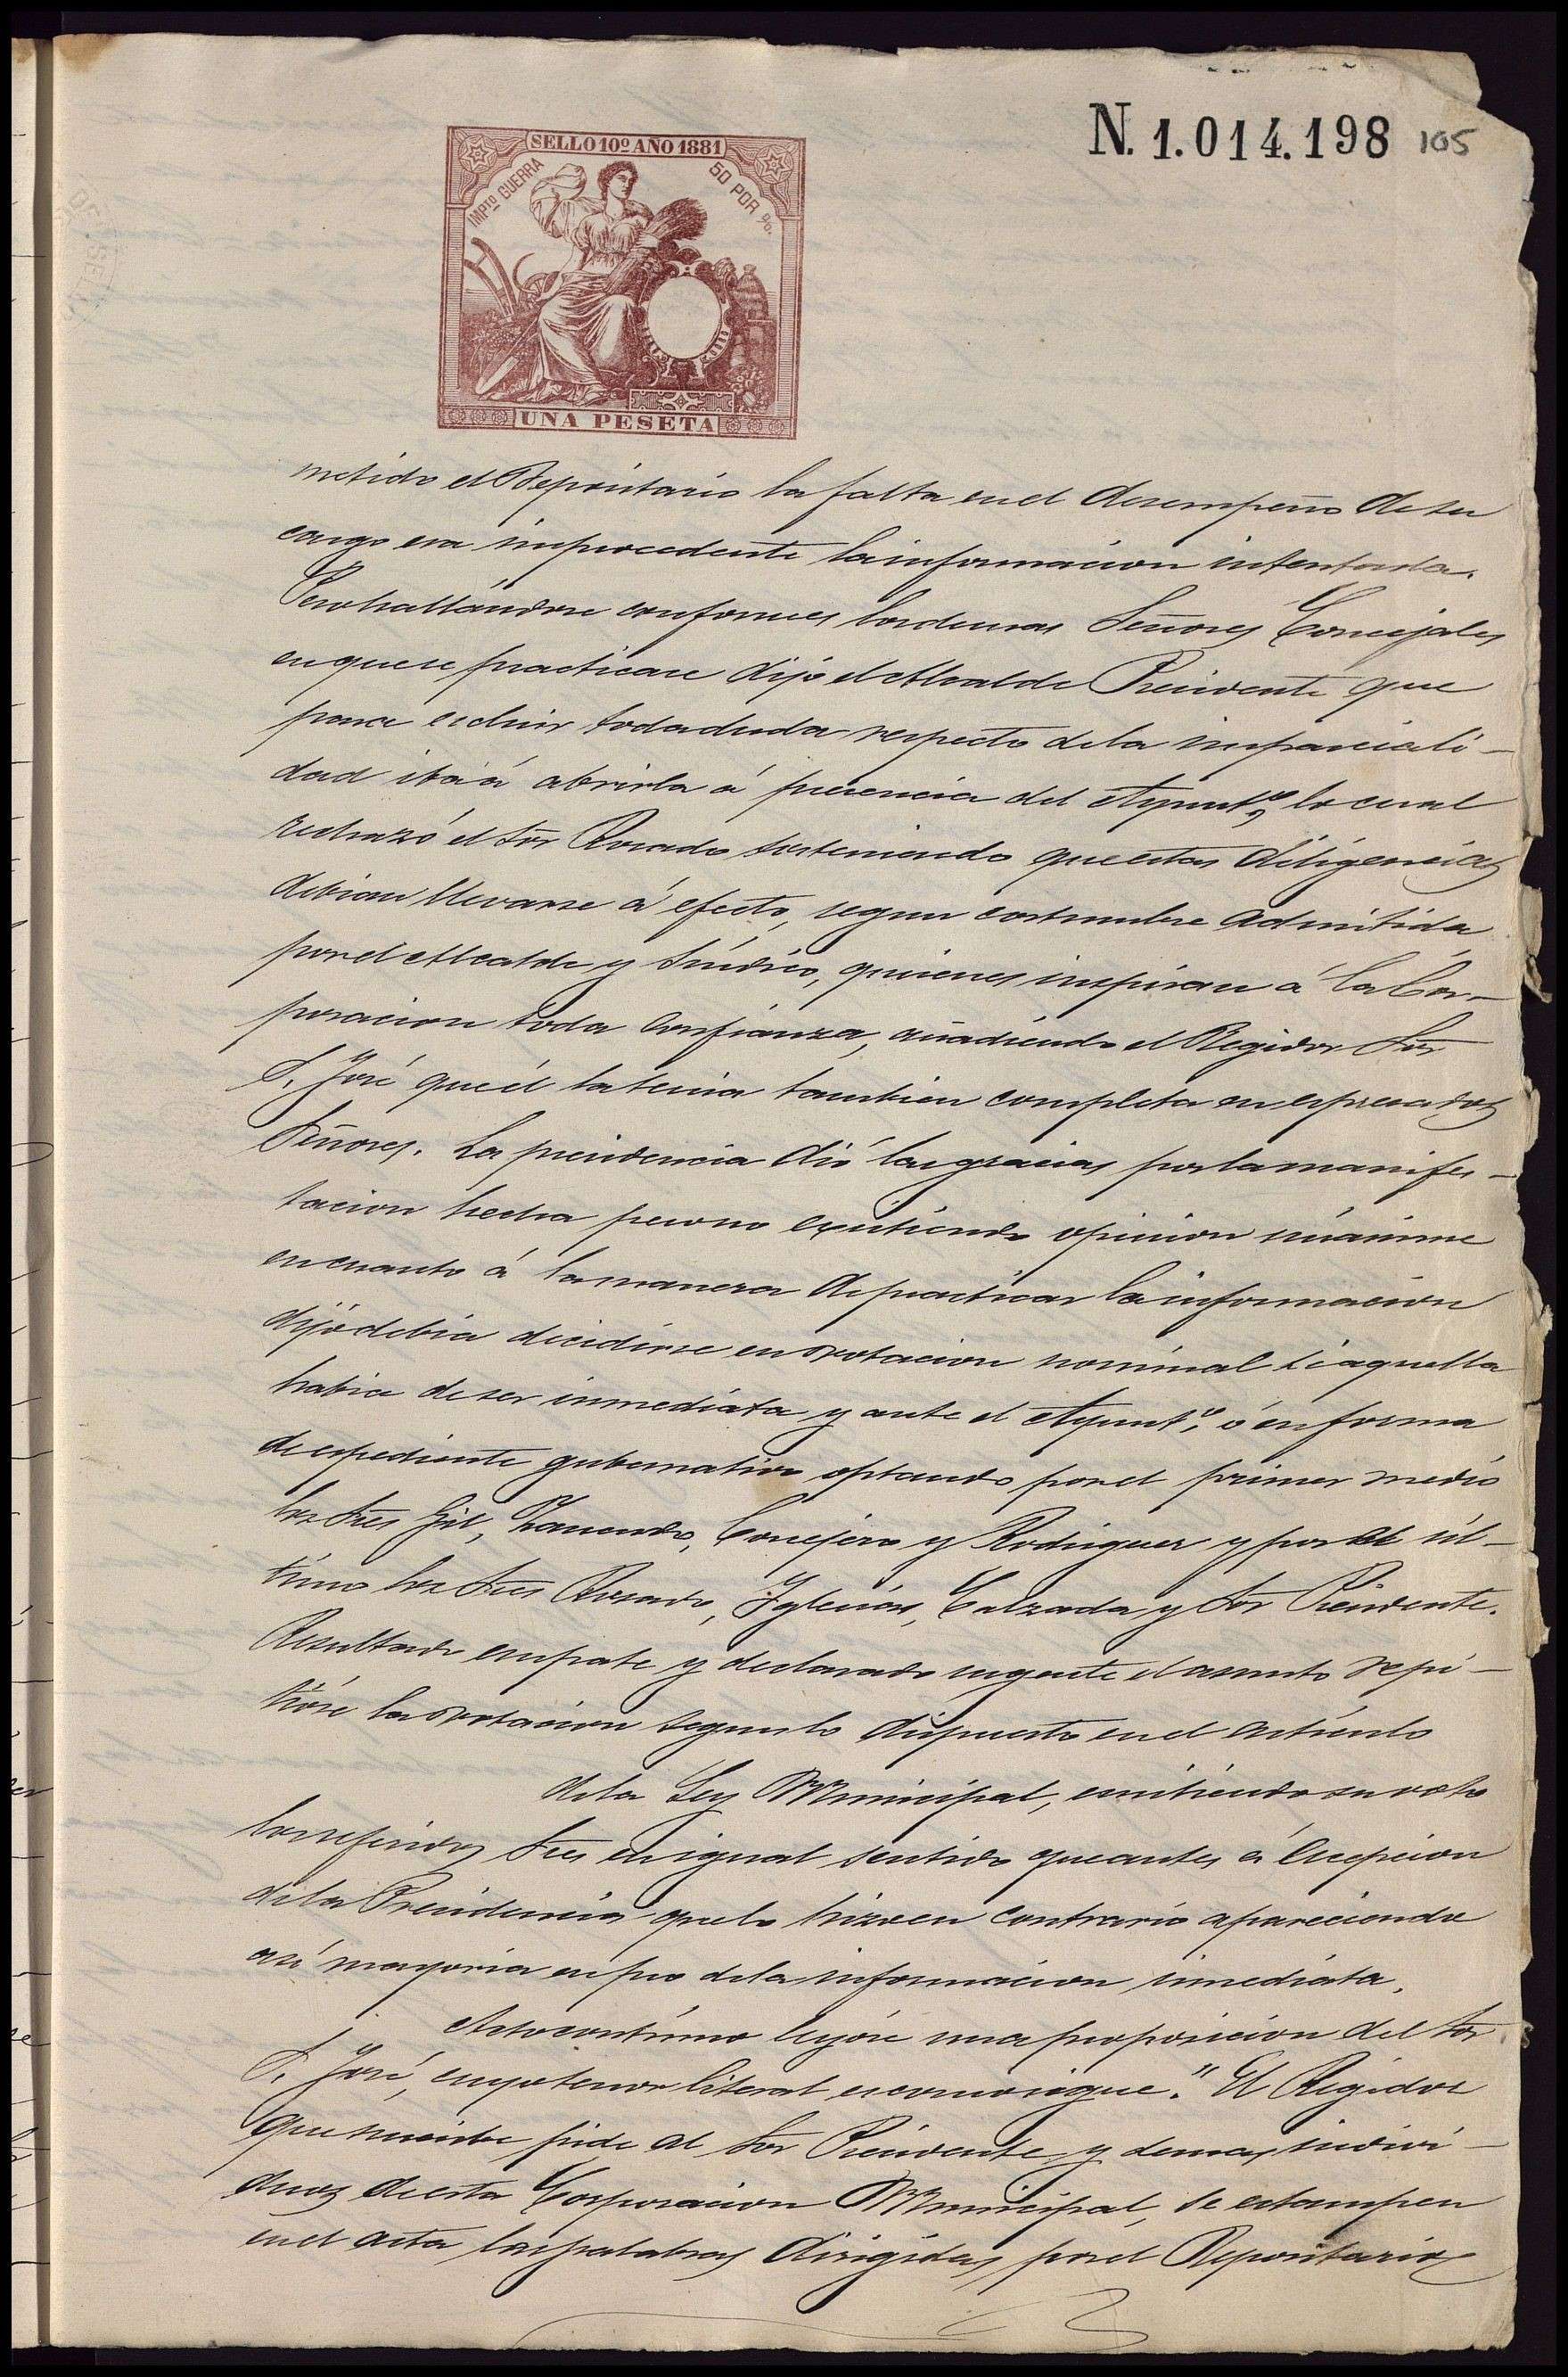 N. 1.014.198 105
SELLO 10º AÑO 1881
IMPTO GUERRA
50 POR %.
UNA PESETA
metido el Depositario la falta en el desempeño de su
cargo era improcedente la informacion intentada.
Pero hallándose conformes los demas Señores Concejales
en que se practicase dijo el Alcalde Presidente que
para escluir toda duda respecto de la imparciali-
dad iba á abrirla á presencia del Ayuntº, lo cual
rechazó el Sor Rosado sosteniendo que estas diligencias
debian llevarse á efecto, segun costumbre admitida
por el Alcalde y Síndico, quienes inspiran á la Cor-
poracion toda confianza, añadiendo el Regidor Sor
S. José que él la tenia tambien completa en espresados
Señores. La presidencia dió las gracias por la manifes-
tacion hecha pero no existiendo opinion unánime
en cuanto á la manera de practicar la informacion
dijo debia decidirse en votacion nominal si aquella
habia de ser inmediata y ante el Ayuntº, ó en forma
de espediente gubernativo optando por el primer medio
los Sres Gil, Conejero y Rodriguez y por el úl-
timo los Sres Rosado, Iglesias, Calzada y Sor Presidente.
Resultado empate y declarado urgente el asunto repi-
tióse la votacion segun lo dispuesto en el artículo
de la Ley Municipal, emitiendo su voto
los referidos Sres en igual sentido que antes á escepcion
de la Presidencia que lo hizo en contrario apareciendo
así mayoría en pro de la informacion inmediata.
Acto contínuo leyóse una proposicion del Sor
S. José, cuyo tenor literal es como sigue. "El Regidor
que suscribe pide al Sor Presidente y demas indivi-
duos de esta Corporacion Municipal, se estampen
en el acta las palabras dirigidas por el Depositario